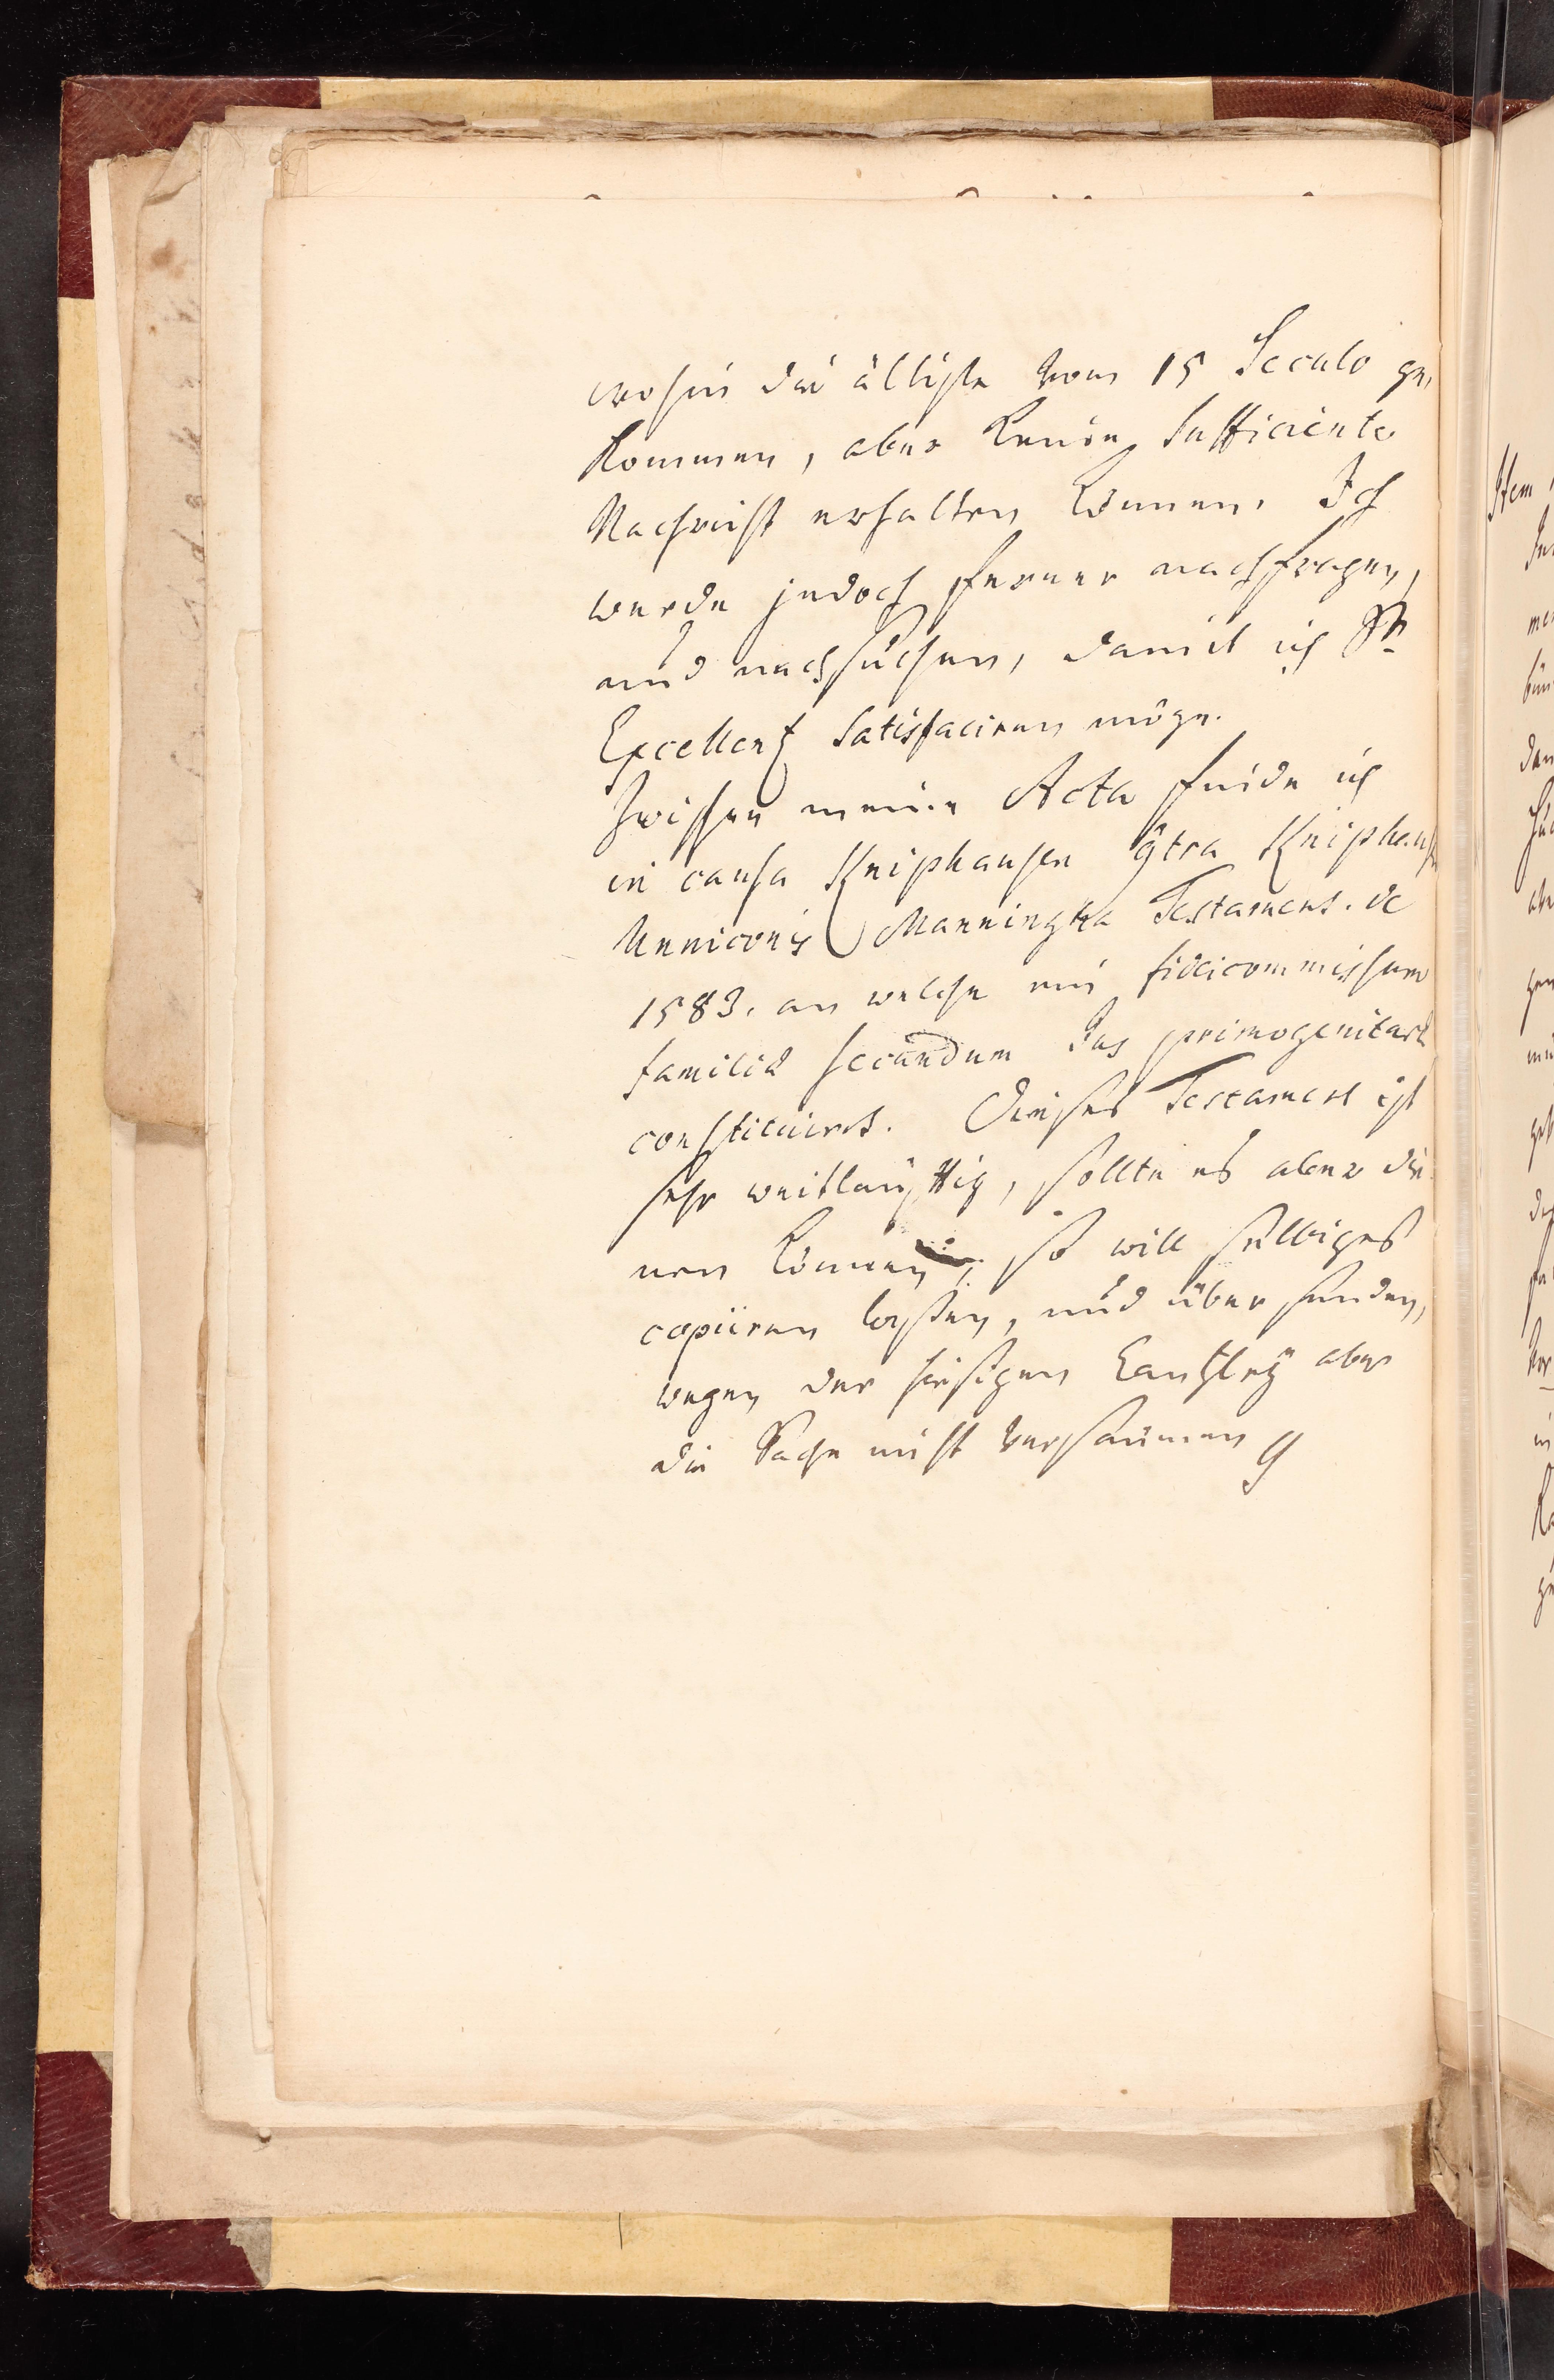 wohin die ältiste vom 15 Seculo ge,
kommen, aber keine sufficiente
Nachricht erhalten können. Ich
werde jedoch ferner nachfragen,
und nachsuchen, damit ich Sr
Excellenz satisfaciren möge.
Zwischen meine Acta finde ich
in causa Kniphausen contra Kniphaus
Unniconis Manningha Testament. de
1583. an welche ein fideicommissum
familiae secundum jus primogeniturae
constituirt. Dieses Testament ist
sehr weitläufftig, sollte es aber die
nen können, so will selbiges
copiiren lassen, und über senden,
wegen der hiesigen Cantzley aber
die Sache nicht versäumen